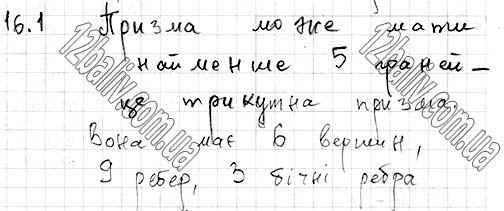 16.1 Призма може мати
найменше 5 граней –
це трикутна призма.
Вона має 6 вершин,
9 ребер, 3 бічні ребра
12baliv.com.ua
12baliv.com.ua